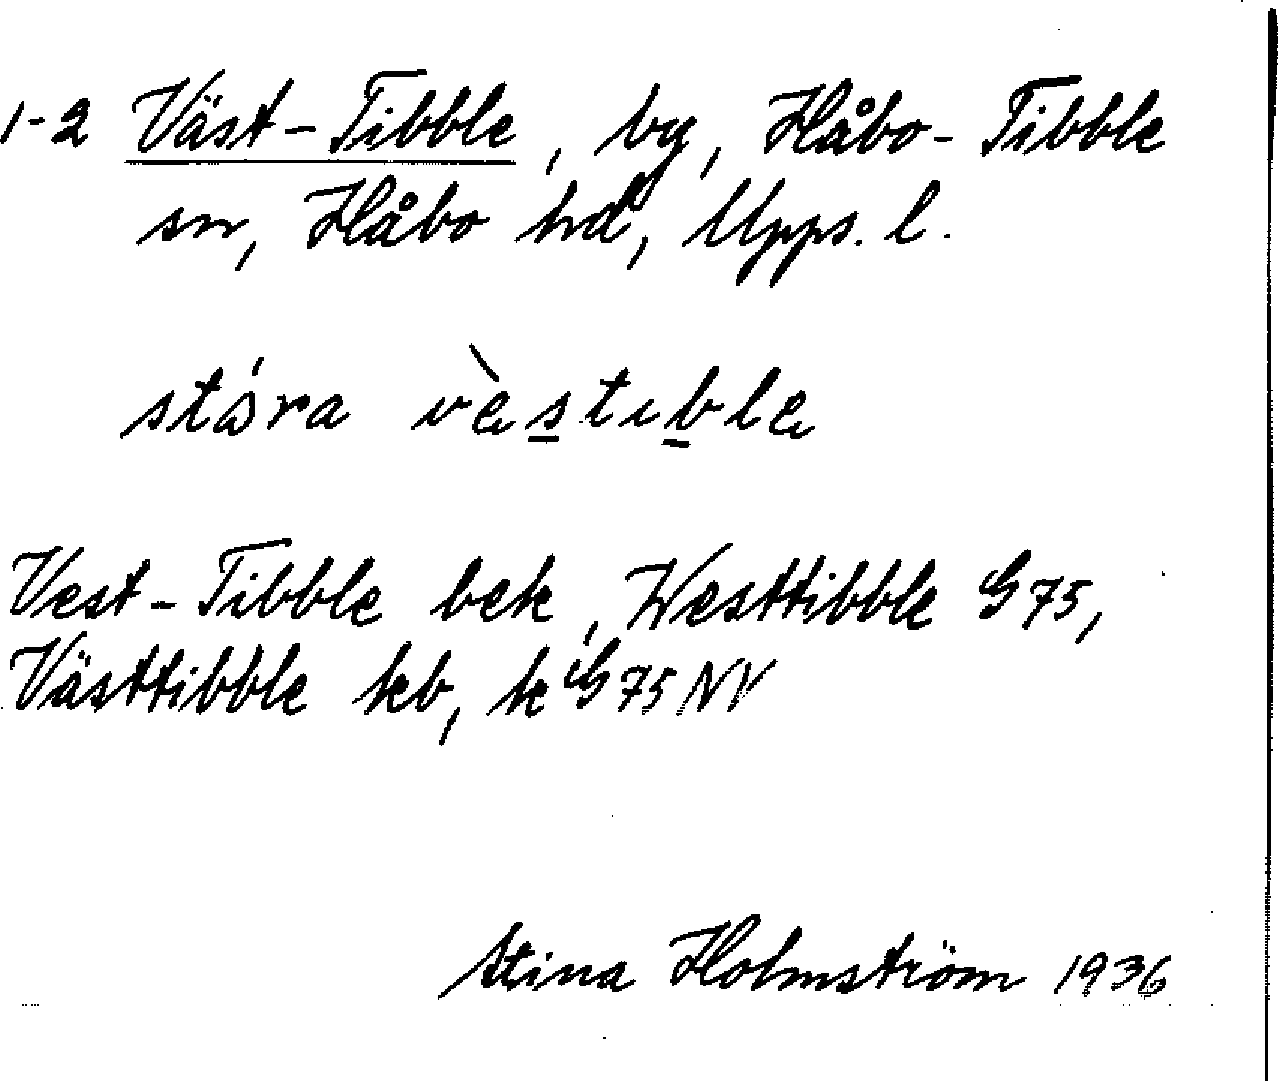 1-2 Väst-Tibble, by, Håbo-Tibble
sn, Håbo hd, Upps. l.
stó̀ra vèstıble
Vest-Tibble bek, Westtibble G75,
Västtibble kb, k G75 NV
Stina Holmström 1936